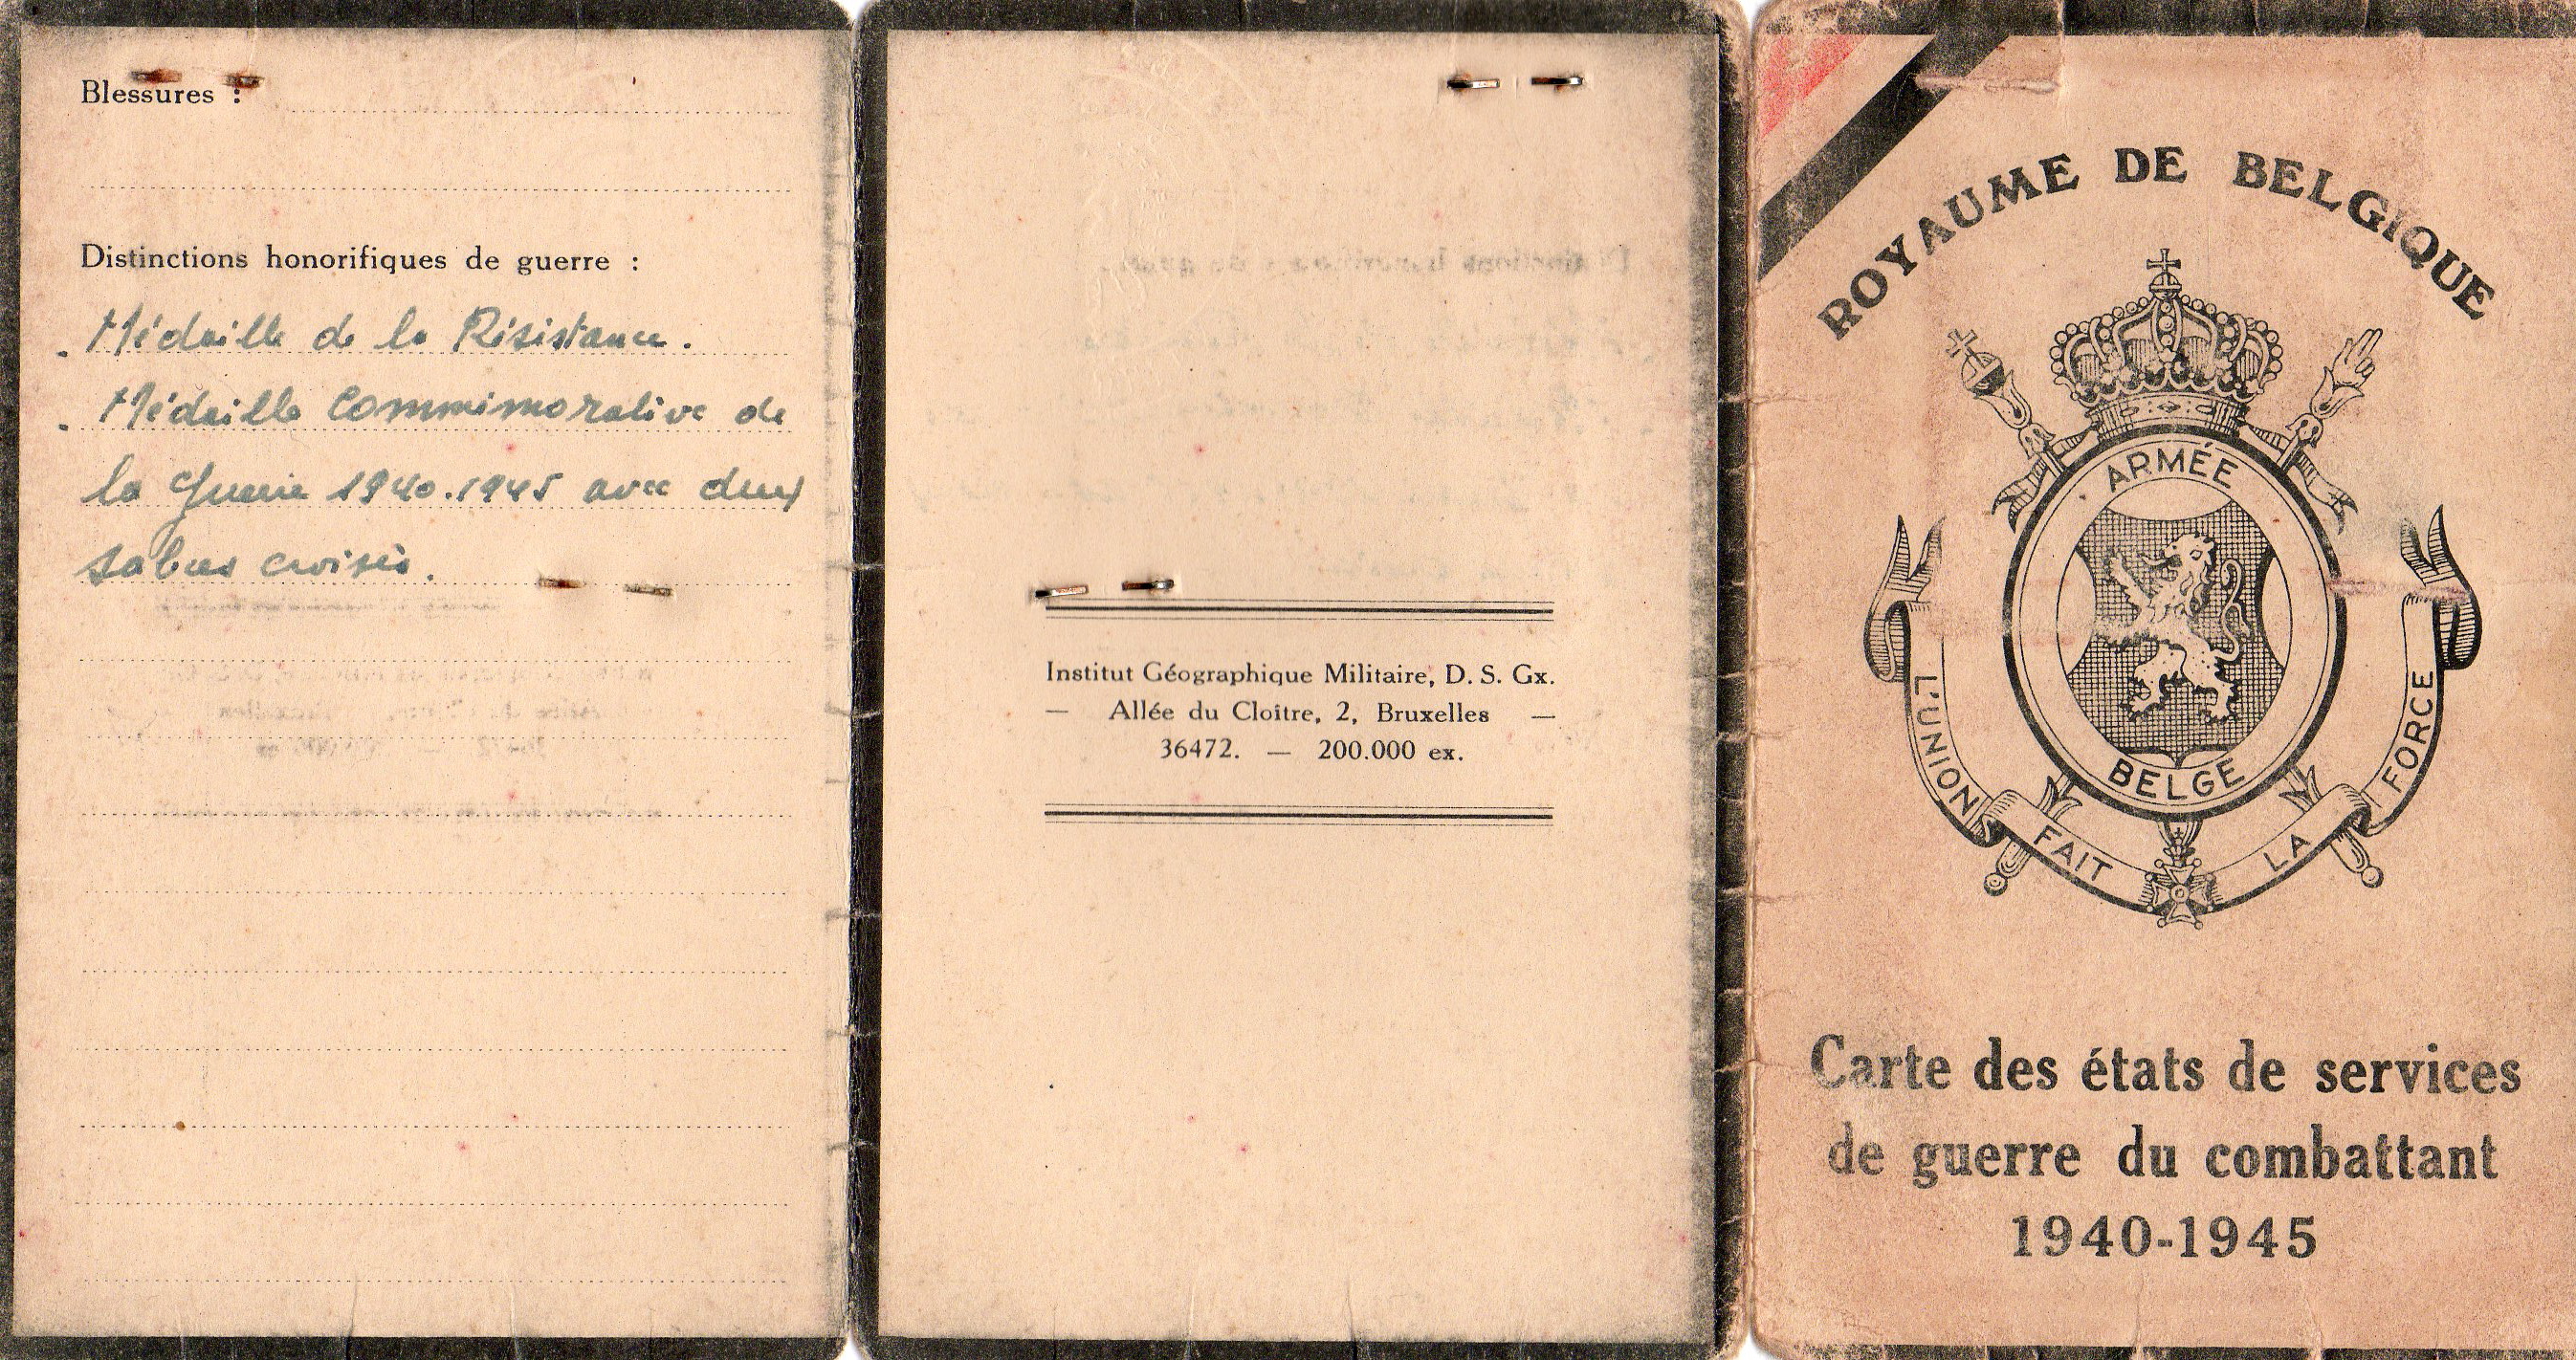 Blessures :
Distinctions honorifiques de guerre :
. Médaille de la Résistance.
. Médaille Commémorative de
la Guerre 1940.1945 avec deux
sabres croisés.
Institut Géographique Militaire, D. S. Gx.
— Allée du Cloître, 2, Bruxelles —
36472. — 200.000 ex.
ROYAUME DE BELGIQUE
ARMÉE
BELGE
L'UNION FAIT LA FORCE
Carte des états de services
de guerre du combattant
1940-1945